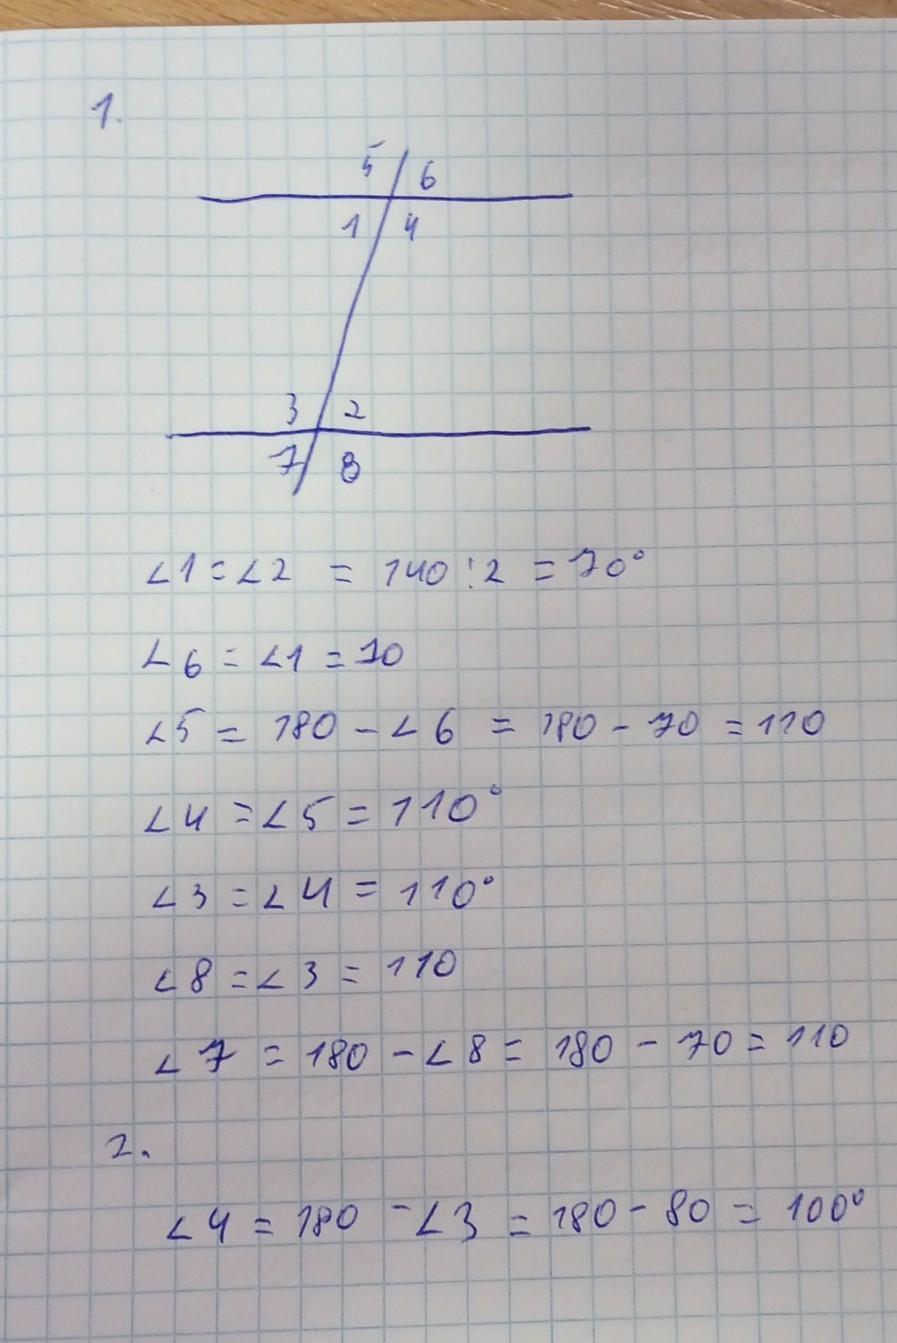 1.
5 6
1 4
3 2
7 8
∠1 = ∠2 = 140 : 2 = 70°
∠6 = ∠1 = 70
∠5 = 180 - ∠6 = 180 - 70 = 110
∠4 = ∠5 = 110°
∠3 = ∠4 = 110°
∠8 = ∠3 = 110
∠7 = 180 - ∠8 = 180 - 70 = 110
2.
∠4 = 180 - ∠3 = 180 - 80 = 100°